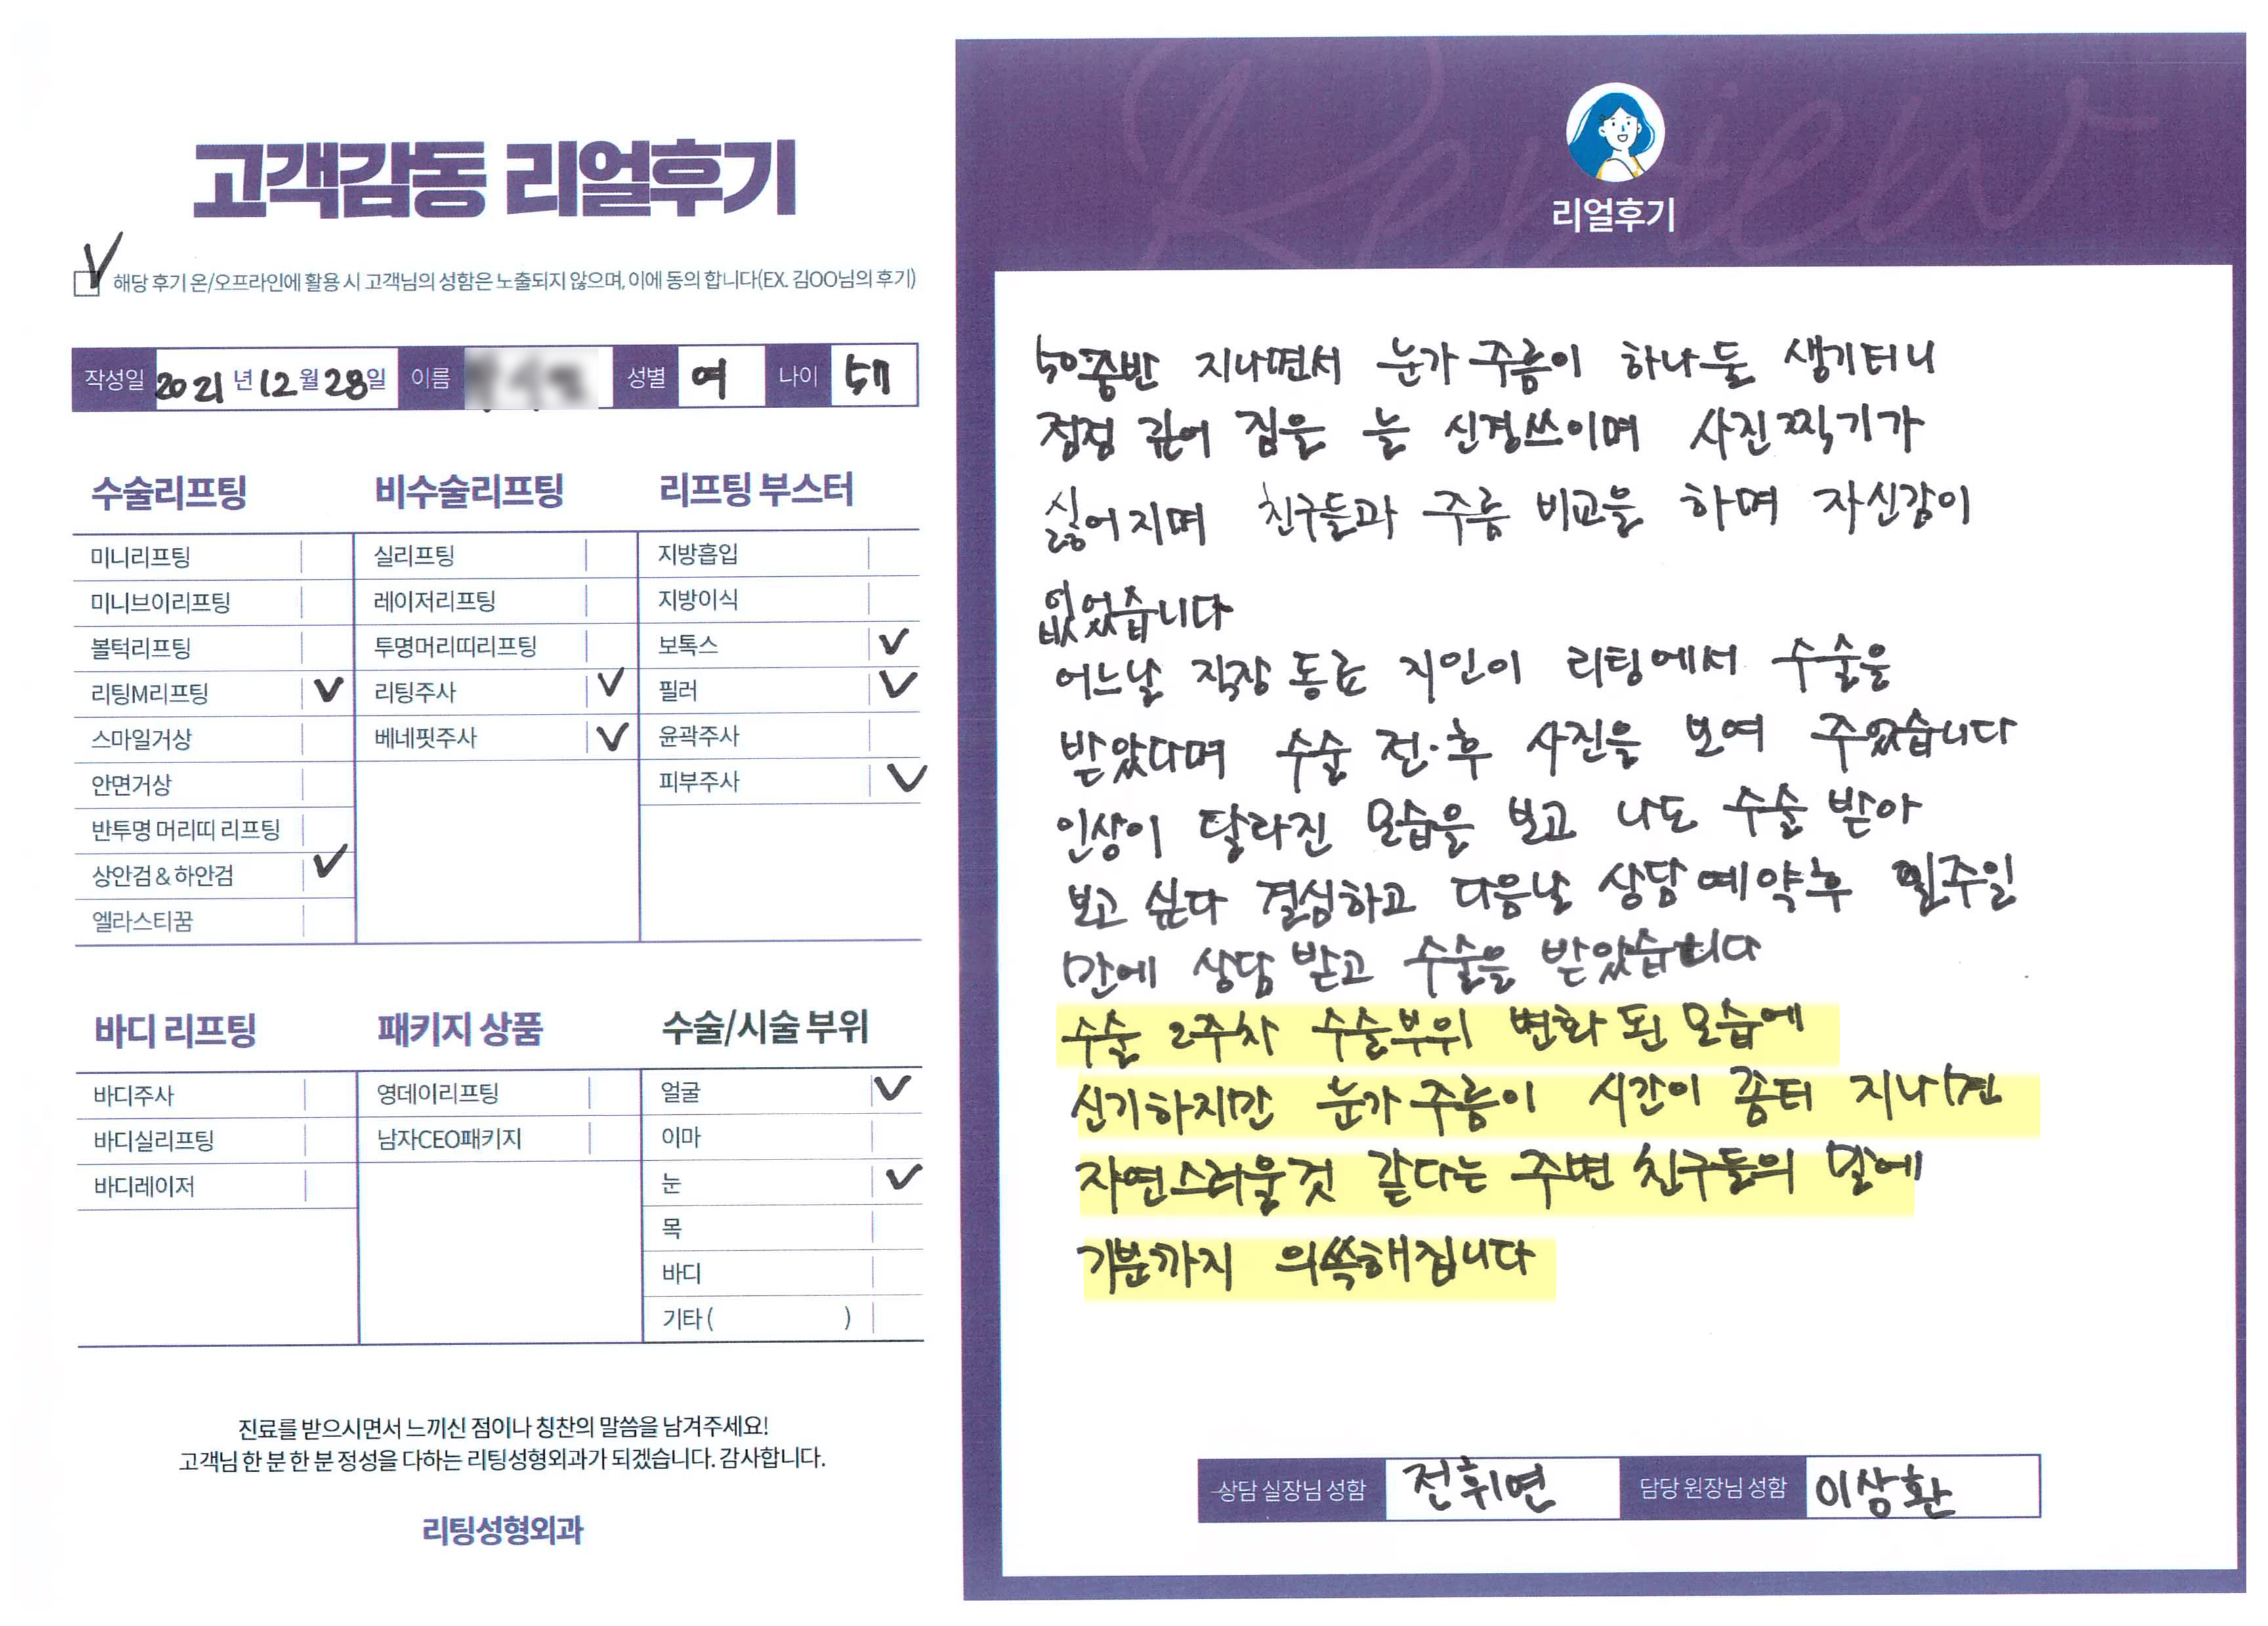 고객감동 리얼후기
해당 후기 온/오프라인에 활용 시 고객님의 성함은 노출되지 않으며, 이에 동의 합니다(EX. 김OO님의 후기)
작성일 2021년 12월 28일 이름 성별 여 나이 57
수술리프팅 비수술리프팅 리프팅 부스터
미니리프팅 실리프팅 지방흡입
미니브이리프팅 레이저리프팅 지방이식
볼턱리프팅 투명머리띠리프팅 보톡스 ✓
리팅M리프팅 ✓ 리팅주사 ✓ 필러 ✓
스마일거상 베네핏주사 ✓ 윤곽주사
안면거상 피부주사 ✓
반투명 머리띠 리프팅
상안검 & 하안검 ✓
엘라스티꿈
바디 리프팅 패키지 상품 수술/시술 부위
바디주사 영데이리프팅 얼굴 ✓
바디실리프팅 남자CEO패키지 이마
바디레이저 눈 ✓
목
바디
기타 ( )
진료를 받으시면서 느끼신 점이나 칭찬의 말씀을 남겨주세요!
고객님 한 분 한 분 정성을 다하는 리팅성형외과가 되겠습니다. 감사합니다.
리팅성형외과
Review
리얼후기
50중반 지나면서 눈가 주름이 하나둘 생기터니
점점 깊어 짐을 늘 신경쓰이며 사진찍기가
싫어지며 친구들과 주름 비교을 하며 자신감이
없었습니다
어느날 직장 동료 지인이 리팅에서 수술을
받았다며 수술 전·후 사진을 보여 주었습니다
인상이 달라진 모습을 보고 나도 수술 받아
보고 싶다 결심하고 다음날 상담예약후 일주일
만에 상담 받고 수술을 받았습니다
수술 2주차 수술부위 변화 된 모습에
신기하지만 눈가 주름이 시간이 좀터 지나면
자연스러울것 같다는 주변 친구들의 말에
기분까지 의쓱해집니다
상담 실장님 성함 전휘연 담당 원장님 성함 이상환